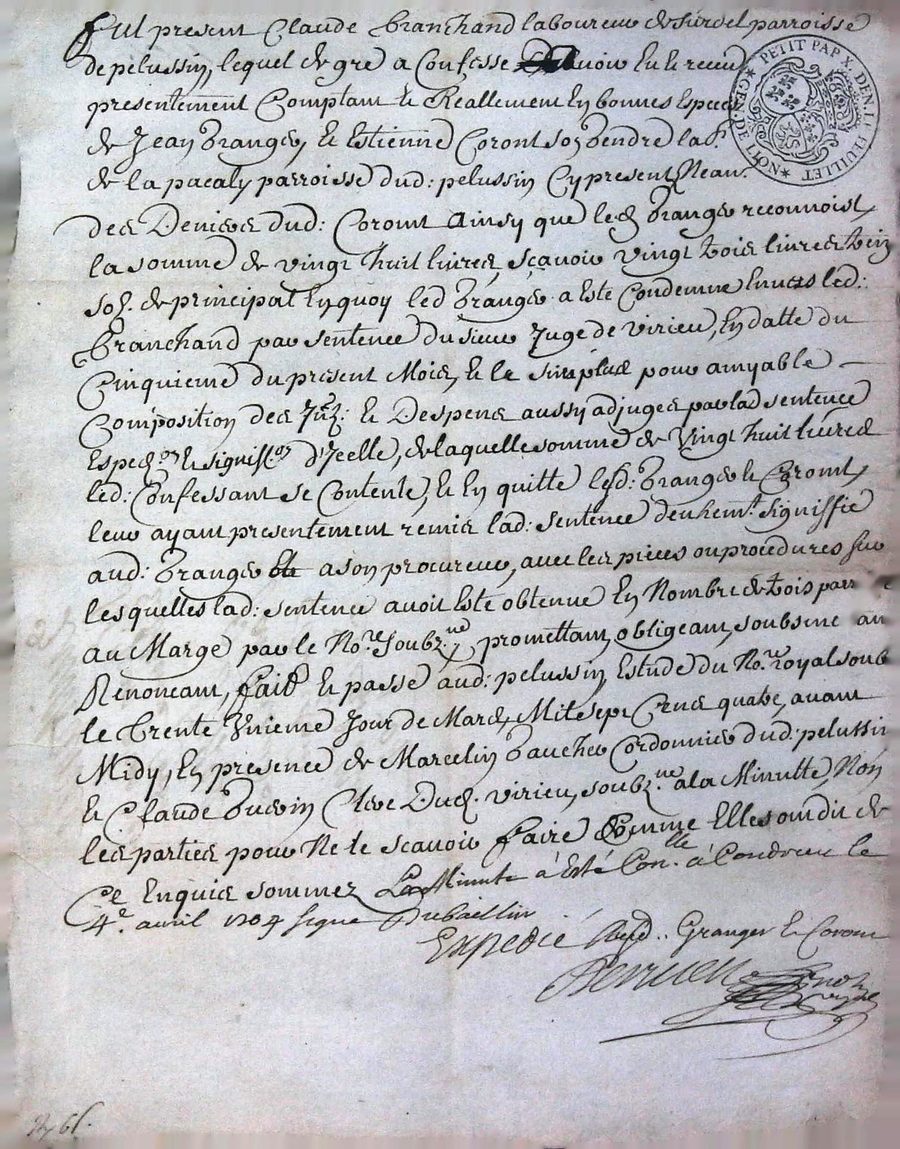 Fut present Claude Branchand laboureur de Surdel parroisse
de pelussin, lequel de gré a Confessé avoir eu et receu
presentement Comptant et Reallement En bonnes Espec
de Jean Granger, et Estienne Coront son gendre lab.r
de la pacaly parroisse dud: pelussin Cy present Nean.
des Deniers dud: Coront ainsy que led Granger reconnoist
la somme de vingt huit livres, sçavoir vingt trois livres treize
sol. de principal En quoy led Granger a Esté Condemné Envers led:
Branchand par sentence du sieur Juge de virieu, En datte du
Cinquieme du present Mois, et le surplus pour amyable
Composition des et Despens aussy adjugés par lad sentence
Exped.on et signiff.on d'Icelle, de laquelle somme de Vingt huit livres
led: Confessant se Contente, et En quitte lesd: Granger et Coront,
leur ayant presentement remis lad: sentence deuhem.t signiffié
aud: Granger a son procureur, avec les pieces ou procedures sur
lesquelles lad: sentence avoit Esté obtenue En Nombre de trois parr
au Marge par le No.re Soubz.né, promettant, obligeant, soubsmet
Renonceant, fait et passé aud: pelussin Estude du No.re royal soub
le trente Unieme Jour de Mars, Mil sept Cens quatre, avant
Midy, En presence de Marcelin Gaucher Cordonnier dud: pelussin
et Claude Clerc Dud. virieu, soubz.nés a la Minutte, Non
les parties pour Ne le sçavoir faire Comme Elles ont dit de
Ce Enquis sommez La Minute à Esté Con.lle à Condrieu le
4.e avril 1704 signé Dubaillin
Expedié Ausd.. Granger et Coront
2